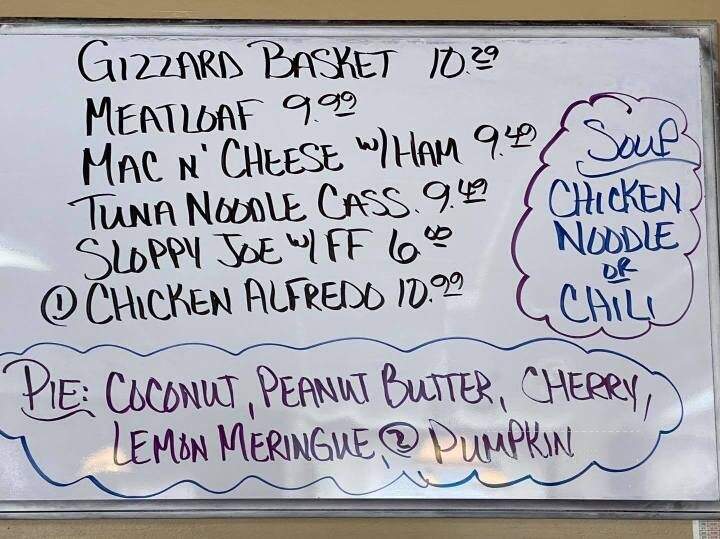 GIZZARD BASKET 10.29
MEATLOAF 9.99
MAC N' CHEESE W/ HAM 9.49
TUNA NOODLE CASS. 9.49
SLOPPY JOE W/ FF 6.00
① CHICKEN ALFREDO 10.99
SOUP
CHICKEN
NOODLE
OR
CHILI
PIE: COCONUT, PEANUT BUTTER, CHERRY,
LEMON MERINGUE, ② PUMPKIN